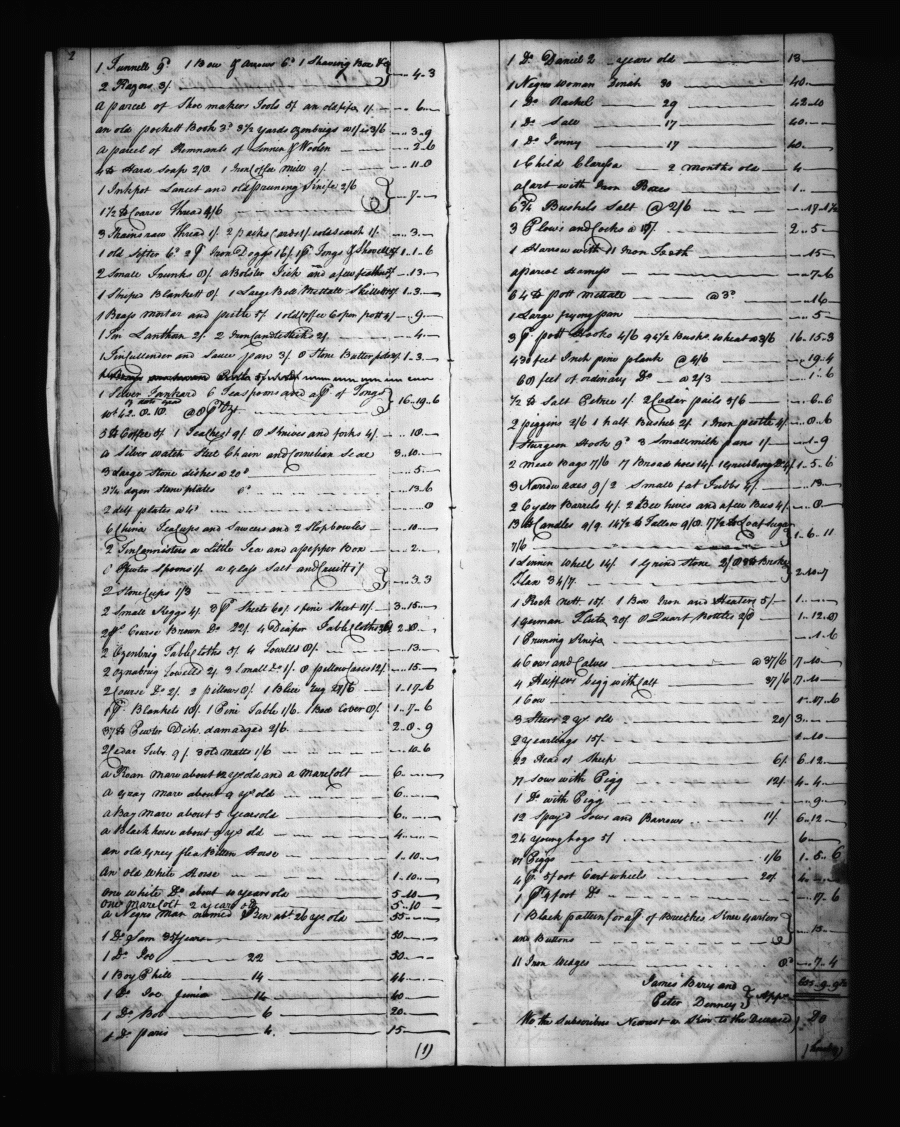 2
1 Funnell 9d 1 Bow & Arrows 6d 1 Shaving Box &
2 Razors 3/ } 4..3
a parcel of Shoe makers Tools 5/ an old 1/ 6
an old pockett Book 3d 3½ yards Ozenbrigs 3/6 3..9
a parcel of Remnants of Linnen & Woolen 2..6
4 lb Hard Soap 2/0 1 Iron Coffee Mill 9/ 11..0
1 Inkpot Lancet and old pruning Knife 2/6
1½ lb Coarse Thread 4/6 } 7
3 raw Thread 1/ 2 packs Cards 1/ 3
1 old Sifter 6d 2 pr Iron Doggs 16/ 1 pr Tongs & Shovel 1..1..6
2 Small Trunks 8/ a Bolster Tick and a few feathers 13
1 Striped Blankett 8/ 1 Large Bell Mettall Skillett 1..3
1 Brass mortar and pestle 5/ 1 old Coffee Copper pott 4/ 9
1 Tin Lanthan 2/. 2 Iron Candlesticks 2/. 4
1 Tin Cullender and Sauce pan 3/. 8 Stone Butter potts 1..3
1 Silver Tankard 6 Teaspoons and a pr of Tongs
wt 42..0..10. @ 8 } 16..19..6
5 lb Coffee 5/ 1 Tea Chest 9/. 8 Knives and forks 4/. 18
a Silver watch Steel Chain and Cornelian Seal 3..10
3 Large Stone dishes @ 20d 5
2¼ dozen Stone plates 6d 13..6
2 delf plates @ 4d 8
6 China Tea Cups and Saucers and 2 Slop bowles 10
2 Tin Cannisters a Little Tea and a pepper Box 2
8 Pewter Spoons 1/. a glass Salt and Cruitt 1/
2 Stone Cups 1/3 } 3..3
2 Small Keggs 4/. 3 pr Sheets 60/. 1 fine Sheet 11/. 3..15
2 pr Course Brown Do 22/. 4 Diaper Table Cloths 2..18
2 Ozenbrig Table Cloths 5/. 4 Towells 8/. 13
2 Oznabrig Towells 2/. 3 Small Do 1/. 8 pillow Cases 12/. 15
2 Course Do 2/. 2 pillows 8/. 1 Blue Rug 27/6 1..17..6
1 pr Blankets 18/. 1 Pine Table 1/6. 1 Bed Cover 8/. 1..7..6
37 lb Pewter Dish damaged 2/6 2..8..9
2 Cedar Tubs 9/. 3 old Matts 1/6 10..6
a Roan mare about 12 yrs old and a Mare Colt 6
a Gray mare about 9 yrs old 6
a Bay mare about 5 years old 6
a Black horse about 9 yrs old 4
an old Grey flea bitten Horse 1..10
An old White Horse 1..10
one white Do about 10 years old 5..10
one mare Colt 2 years old 5..10
a Negro man named Ben abt 26 yrs old 55
1 Do Sam 35 Years 50
1 Do Joe 22 50
1 Boy Phill 14 44
1 Do Joe Junia 14 40
1 Do Bob 6 20
1 Do Paris 4. 15
(1)
1 Do Daniel 2 years old 13
1 Negro Woman Dinah 30 40
1 Do Rachel 29 42..10
1 Do Sall 17 40
1 Do Jenny 17 40
1 Child Clarissa 2 months old 4
a Cart with Iron Boxes 1
6¾ Bushels Salt @ 2/6 17..1½
3 Plows and Cocks @ 15/. 2..5
1 Harrow with 11 Iron Teeth 15
a parcel 7..6
64 lb pott Mettale @ 3d 16
1 Large frying pan 5
3 pr pott Hooks 4/6 94½ Bushs Wheat @ 3/6 16..15..3
430 feet Inch pine plank @ 4/6 19..4
60 feet of ordinary Do @ 2/3 1..6
½ lb Salt Petre 1/. 2 Ceder pails 3/6 6..6
2 piggins 2/6 1 half Bushel 2/. 1 Iron pestle 4/. 8..6
1 Sturgeon Hook 9d 3 Small milk pans 1/ 1..9
2 meal Bags 7/6 17 Broad hoes 14/. 1 Grubbing Do 4/ 1..5..6
3 Narrow axes 9/2 Small fat Tubbs 4/. 13
2 Cyder Barrels 4/. 2 Bee hives and a few Bees 4/. 8
13 lb Candles 9/9. 14½ lb Tallow 9/8. 7½ lb Loaf Sugar
7/6 } 1..6..11
1 Linnen Whell 14/. 1 Grind Stone 2/
Flax 34/7 } 2..10..7
1 Rock nett 15/. 1 Box Iron and Heaters 5/ 1
1 german Flute 20/. 8 Quart Bottles 2/8 1..12..8
1 Pruning Knife 1..6
4 Cows and Calves @ 37/6 7..10
4 Heiffers bigg with Calf 37/6 7..10
1 Cow 1..17..6
3 Steers 2 yrs old 20/. 3
2 yearlings 15/. 1..10
22 Head of Sheep 6/. 6..12
7 Sows with Pigg 12/. 4..4
1 Do with Pigg 9
12 Spay'd Sows and Barrows 11/. 6..12
24 young hogs 5/ 6
17 Piggs 1/6 1..5..6
4 pr 5 foot Cart wheels 20/. 4
1 pr 4 foot Do 17..6
1 Black pattern for a pr of Breeches Knee Garters
and Buttons } 15
11 Iron Wedges 8d 7..4
James Berry and
Peter Denney } Apprs
We the Subscribers Nearest a Kin to the Deceased } Do